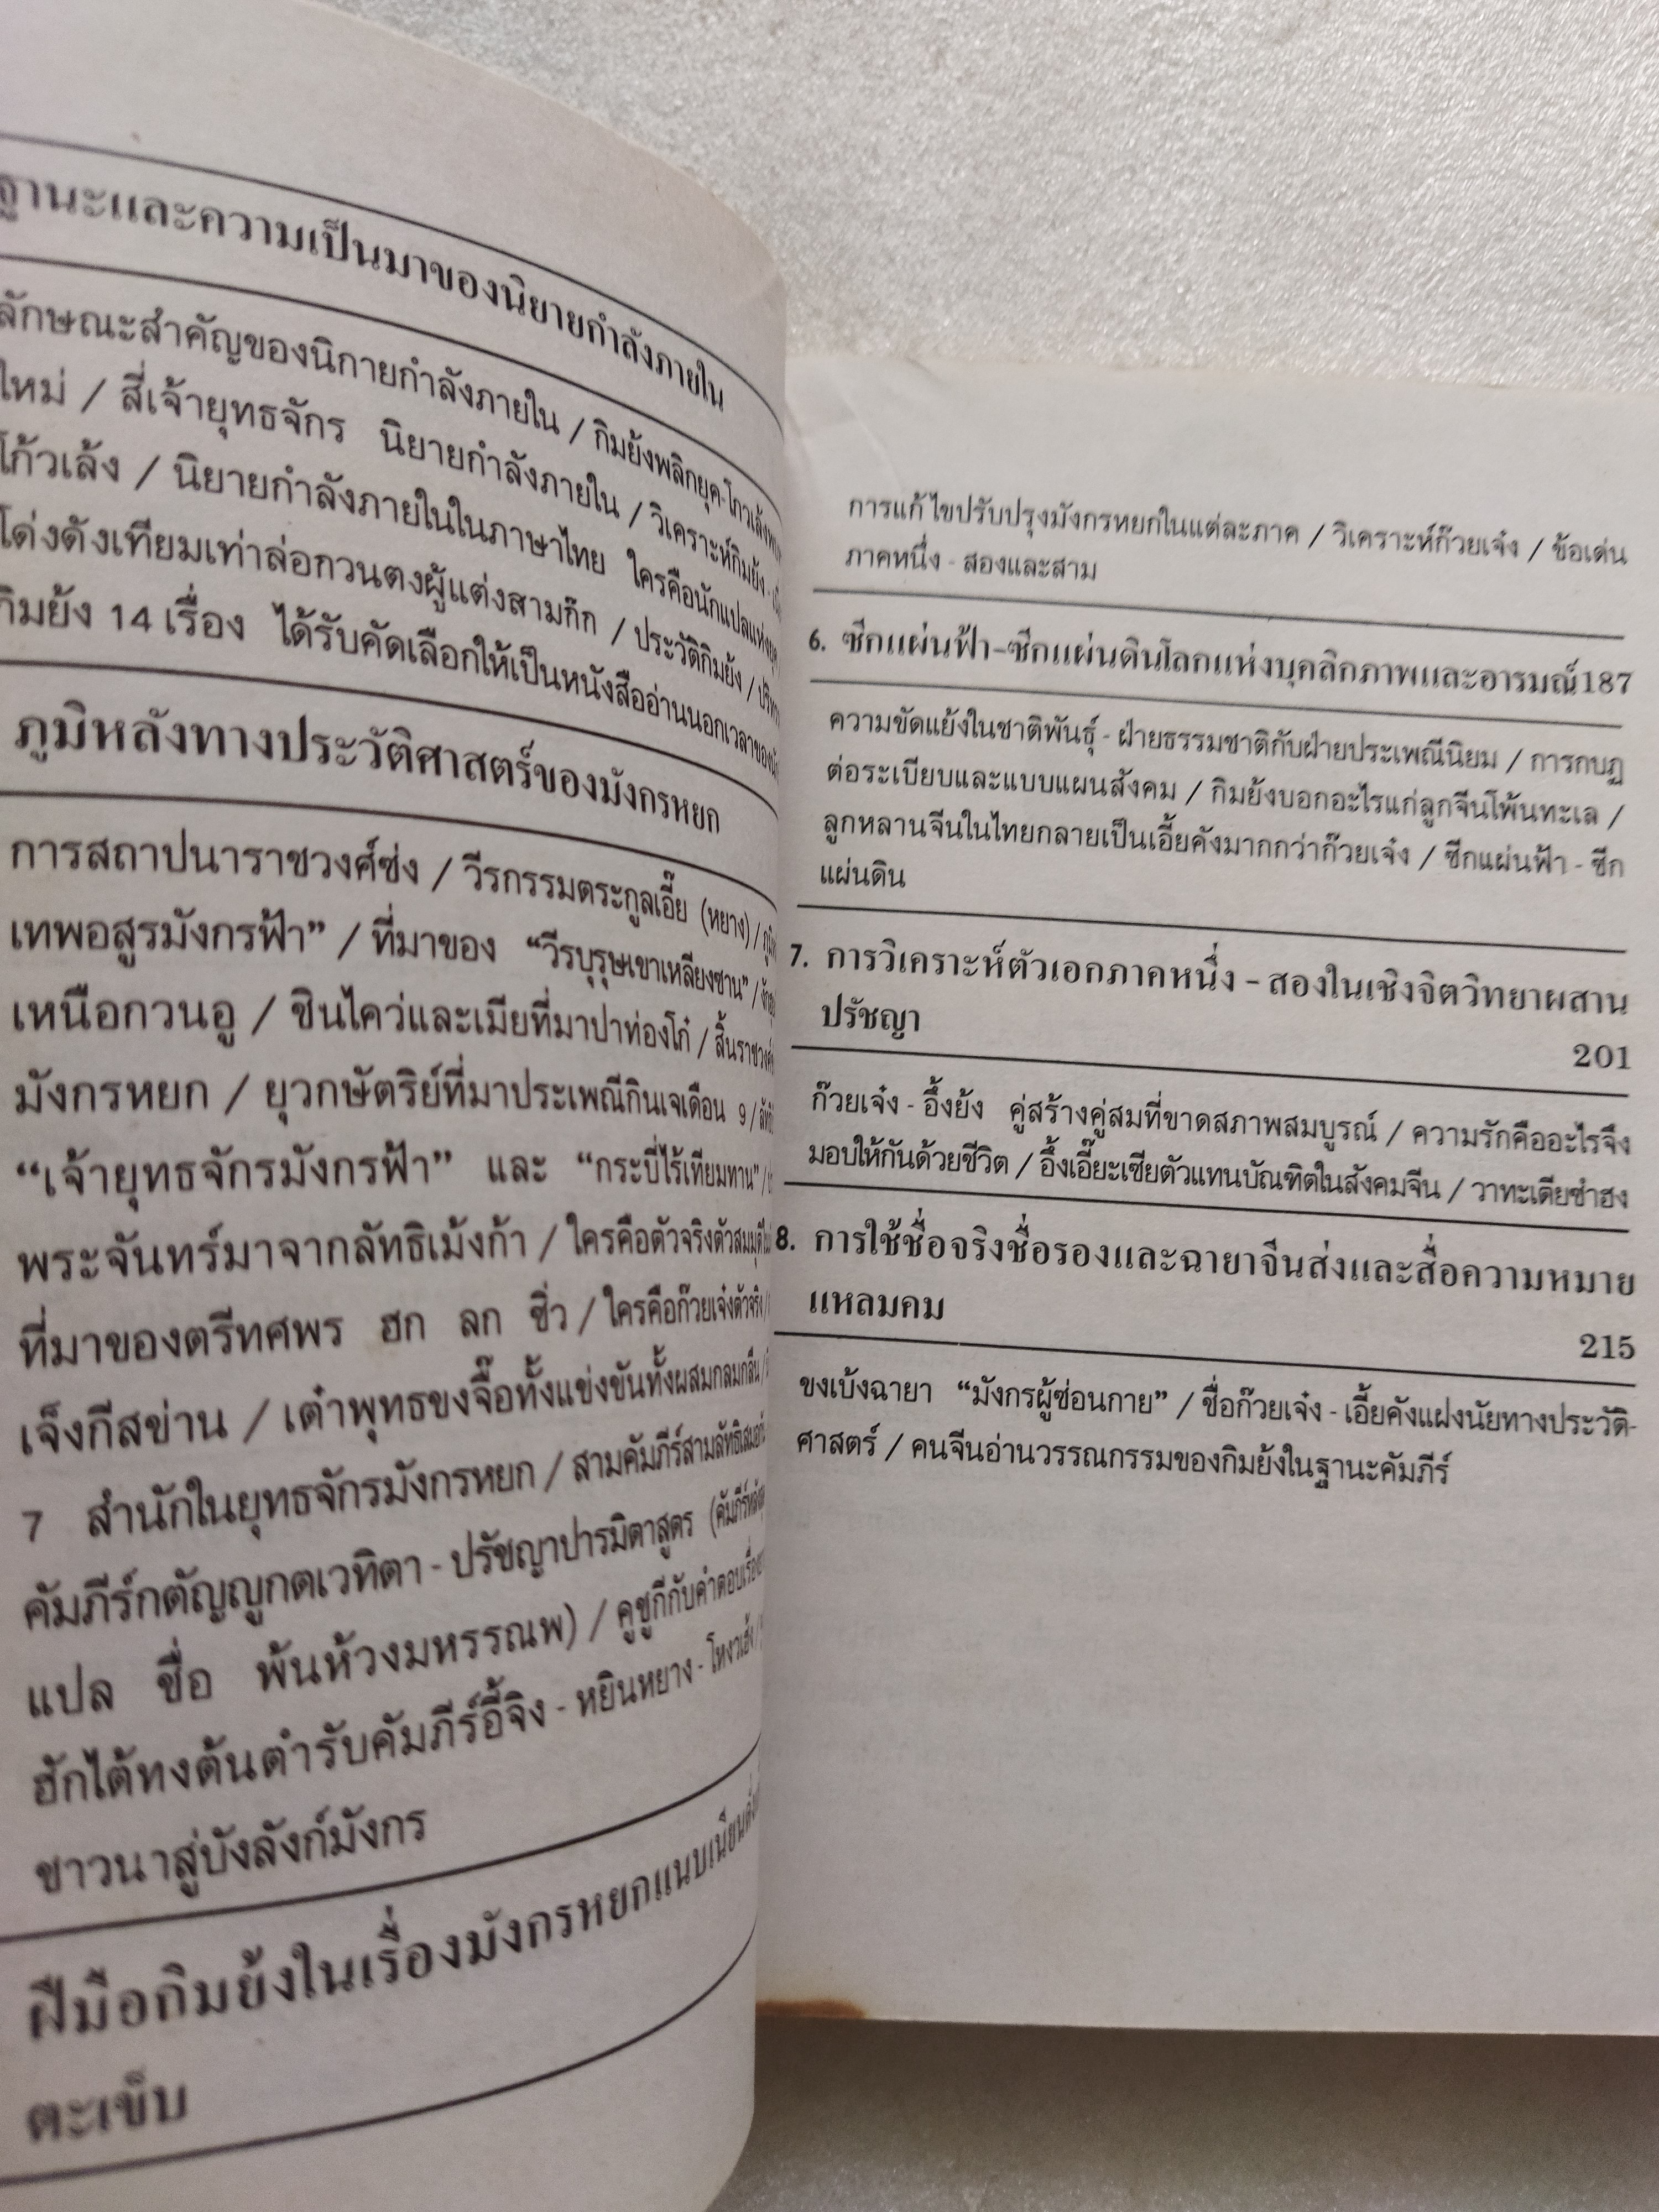 ฐานะและความเป็นมาของนิยายกำลังภายใน
ลักษณะสำคัญของนิกายกำลังภายใน / กิมย้งพลิกยุค-โกวเล้ง
ใหม่ / สี่เจ้ายุทธจักร นิยายกำลังภายใน / วิเคราะห์กิมย้ง -
โก้วเล้ง / นิยายกำลังภายในในภาษาไทย ใครคือนักแปลแห่งยุค
โด่งดังเทียมเท่าล่อกวนตงผู้แต่งสามก๊ก / ประวัติกิมย้ง /
กิมย้ง 14 เรื่อง ได้รับคัดเลือกให้เป็นหนังสืออ่านนอกเวลาของ
ภูมิหลังทางประวัติศาสตร์ของมังกรหยก
การสถาปนาราชวงศ์ซ่ง / วีรกรรมตระกูลเอี๊ย (หยาง) /
เทพอสูรมังกรฟ้า” / ที่มาของ “วีรบุรุษเขาเหลียงซาน” /
เหนือกวนอู / ชินไคว่และเมียที่มาปาท่องโก๋ / สิ้นราชวงศ์
มังกรหยก / ยุวกษัตริย์ที่มาประเพณีกินเจเดือน 9 /
“เจ้ายุทธจักรมังกรฟ้า” และ “กระบี่ไร้เทียมทาน” /
พระจันทร์มาจากลัทธิเม้งก้า / ใครคือตัวจริงตัวสมมุติ
ที่มาของตรีทศพร ฮก ลก ซิ่ว / ใครคือก๊วยเจ๋งตัวจริง /
เจ็งกีสข่าน / เต๋าพุทธขงจื๊อทั้งแข่งขันทั้งผสมกลมกลืน /
7 สำนักในยุทธจักรมังกรหยก / สามคัมภีร์สามลัทธิ
คัมภีร์กตัญญูกตเวทิตา - ปรัชญาปารมิตาสูตร
แปล ชื่อ พ้นห้วงมหรรณพ) / คูชูกีกับคำตอบเรื่อง
ฮักไต้ทงต้นตำรับคัมภีร์อี้จิง - หยินหยาง - โหงวเฮ้ง /
ชาวนาสู่บังลังก์มังกร
ฝีมือกิมย้งในเรื่องมังกรหยกแนบเนียน
ตะเข็บ
การแก้ไขปรับปรุงมังกรหยกในแต่ละภาค / วิเคราะห์ก๊วยเจ๋ง / ข้อเด่น
ภาคหนึ่ง - สองและสาม
6. ซีกแผ่นฟ้า-ซีกแผ่นดินโลกแห่งบุคลิกภาพและอารมณ์187
ความขัดแย้งในชาติพันธุ์ - ฝ่ายธรรมชาติกับฝ่ายประเพณีนิยม / การกบฏ
ต่อระเบียบและแบบแผนสังคม / กิมย้งบอกอะไรแก่ลูกจีนโพ้นทะเล /
ลูกหลานจีนในไทยกลายเป็นเอี้ยคังมากกว่าก๊วยเจ๋ง / ซีกแผ่นฟ้า - ซีก
แผ่นดิน
7. การวิเคราะห์ตัวเอกภาคหนึ่ง - สองในเชิงจิตวิทยาผสาน
ปรัชญา 201
ก๊วยเจ๋ง - อึ้งย้ง คู่สร้างคู่สมที่ขาดสภาพสมบูรณ์ / ความรักคืออะไรจึง
มอบให้กันด้วยชีวิต / อึ้งเอี๊ยะเซียตัวแทนบัณฑิตในสังคมจีน / วาทะเตียซำฮง
8. การใช้ชื่อจริงชื่อรองและฉายาจีนส่งและสื่อความหมาย
แหลมคม 215
ขงเบ้งฉายา “มังกรผู้ซ่อนกาย” / ชื่อก๊วยเจ๋ง - เอี้ยคังแฝงนัยทางประวัติ-
ศาสตร์ / คนจีนอ่านวรรณกรรมของกิมย้งในฐานะคัมภีร์